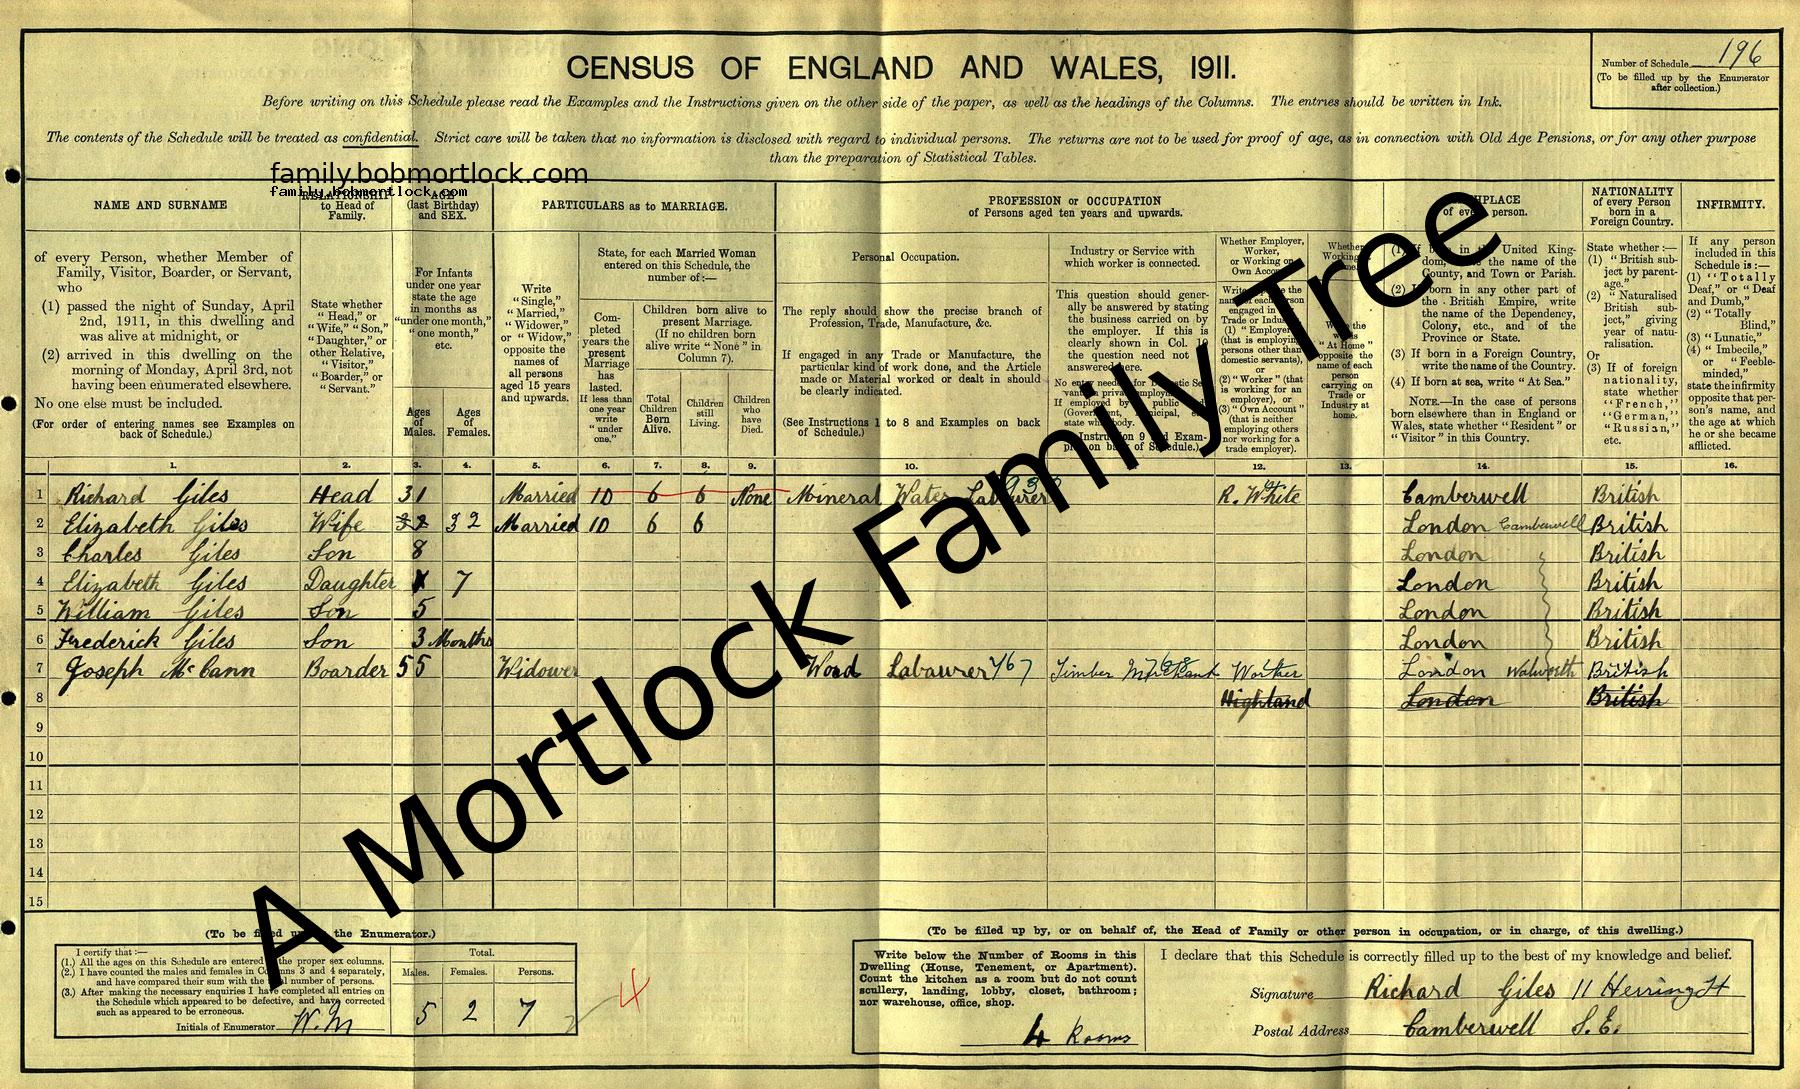 CENSUS OF ENGLAND AND WALES, 1911.
Number of Schedule 196
(To be filled up by the Enumerator after collection.)
Before writing on this Schedule please read the Examples and the Instructions given on the other side of the paper, as well as the headings of the Columns. The entries should be written in Ink.
The contents of the Schedule will be treated as confidential. Strict care will be taken that no information is disclosed with regard to individual persons. The returns are not to be used for proof of age, as in connection with Old Age Pensions, or for any other purpose
than the preparation of Statistical Tables.
family.bobmortlock.com
family.bobmortlock.com
A Mortlock Family Tree
NAME AND SURNAME
of every Person, whether Member of
Family, Visitor, Boarder, or Servant,
who
(1) passed the night of Sunday, April
2nd, 1911, in this dwelling and
was alive at midnight, or
(2) arrived in this dwelling on the
morning of Monday, April 3rd, not
having been enumerated elsewhere.
No one else must be included.
(For order of entering names see Examples on
back of Schedule.)
RELATIONSHIP
to Head of
Family.
State whether
"Head," or
"Wife," "Son,"
"Daughter," or
other Relative,
"Visitor,"
"Boarder," or
"Servant."
AGE
(last Birthday)
and SEX.
For Infants
under one year
state the age
in months as
"under one month,"
"one month,"
etc.
Ages
of
Males.
Ages
of
Females.
PARTICULARS as to MARRIAGE.
Write
"Single,"
"Married,"
"Widower,"
or "Widow,"
opposite the
names of
all persons
aged 15 years
and upwards.
State, for each Married Woman
entered on this Schedule, the
number of:—
Com-
pleted
years the
present
Marriage
has
lasted.
If less than
one year
write
"under
one."
Children born alive to
present Marriage.
(If no children born
alive write "None" in
Column 7).
Total
Children
Born
Alive.
Children
still
Living.
Children
who
have
Died.
PROFESSION or OCCUPATION
of Persons aged ten years and upwards.
Personal Occupation.
The reply should show the precise branch of
Profession, Trade, Manufacture, &c.
If engaged in any Trade or Manufacture, the
particular kind of work done, and the Article
made or Material worked or dealt in should
be clearly indicated.
(See Instructions 1 to 8 and Examples on back
of Schedule.)
Industry or Service with
which worker is connected.
This question should gener-
ally be answered by stating
the business carried on by
the employer. If this is
clearly shown in Col. 10
the question need not be
answered here.
Whether Employer,
Worker,
or Working on
Own Account.
(2) "Worker" (that
is working for an
employer), or
(3) "Own Account"
(that is neither
employing others
nor working for a
trade employer).
name of each
person
carrying on
Trade or
Industry at
home.
BIRTHPLACE
of every person.
(1) If born in the United King-
dom, write the name of the
County, and Town or Parish.
(2) If born in any other part of
the British Empire, write
the name of the Dependency,
Colony, etc., and of the
Province or State.
(3) If born in a Foreign Country,
write the name of the Country.
(4) If born at sea, write "At Sea."
NOTE.—In the case of persons
born elsewhere than in England or
Wales, state whether "Resident" or
"Visitor" in this Country.
NATIONALITY
of every Person
born in a
Foreign Country.
State whether:—
(1) "British sub-
ject by parent-
age."
(2) "Naturalised
British
subject," giving
year of natu-
ralisation.
Or
(3) If of foreign
nationality,
state whether
"French,"
"German,"
"Russian,"
etc.
INFIRMITY.
If any person
included in this
Schedule is:—
(1) "Totally
Deaf," or "Deaf
and Dumb,"
(2) "Totally
Blind,"
(3) "Lunatic,"
(4) "Imbecile,"
or "Feeble-
minded,"
state the infirmity
opposite that per-
son's name, and
the age at which
he or she became
afflicted.
1. 2. 3. 4. 5. 6. 7. 8. 9. 10. 12. 13. 14. 15. 16.
1 Richard Giles Head 31 Married 10 6 6 None Mineral Water Labaurer R. White Camberwell British
2 Elizabeth Giles Wife 32 32 Married 10 6 6 London Camberwell British
3 Charles Giles Son 8 London British
4 Elizabeth Giles Daughter 7 London British
5 William Giles Son 5 London British
6 Frederick Giles Son 3 Months London British
7 Joseph McCann Boarder 55 Widower Wood Labaurer 467 Timber Merchant Worker London Walworth British
8 Highland London British
9
10
11
12
13
14
15
(To be filled up by the Enumerator.)
I certify that:—
(1.) All the ages on this Schedule are entered in the proper sex columns.
(2.) I have counted the males and females in Columns 3 and 4 separately,
and have compared their sum with the total number of persons.
(3.) After making the necessary enquiries I have completed all entries on
the Schedule which appeared to be defective, and have corrected
such as appeared to be erroneous.
Initials of Enumerator W.M
Total.
Males. Females. Persons.
5 2 7
4
(To be filled up by, or on behalf of, the Head of Family or other person in occupation, or in charge, of this dwelling.)
Write below the Number of Rooms in this
Dwelling (House, Tenement, or Apartment).
Count the kitchen as a room but do not count
scullery, landing, lobby, closet, bathroom;
nor warehouse, office, shop.
4 Rooms
I declare that this Schedule is correctly filled up to the best of my knowledge and belief.
Signature Richard Giles 11 Herring St
Postal Address Camberwell S.E.